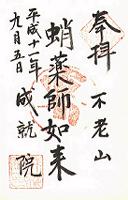 奉拝
不老山
蛸薬師如来
成就院
平成十一年
九月五日